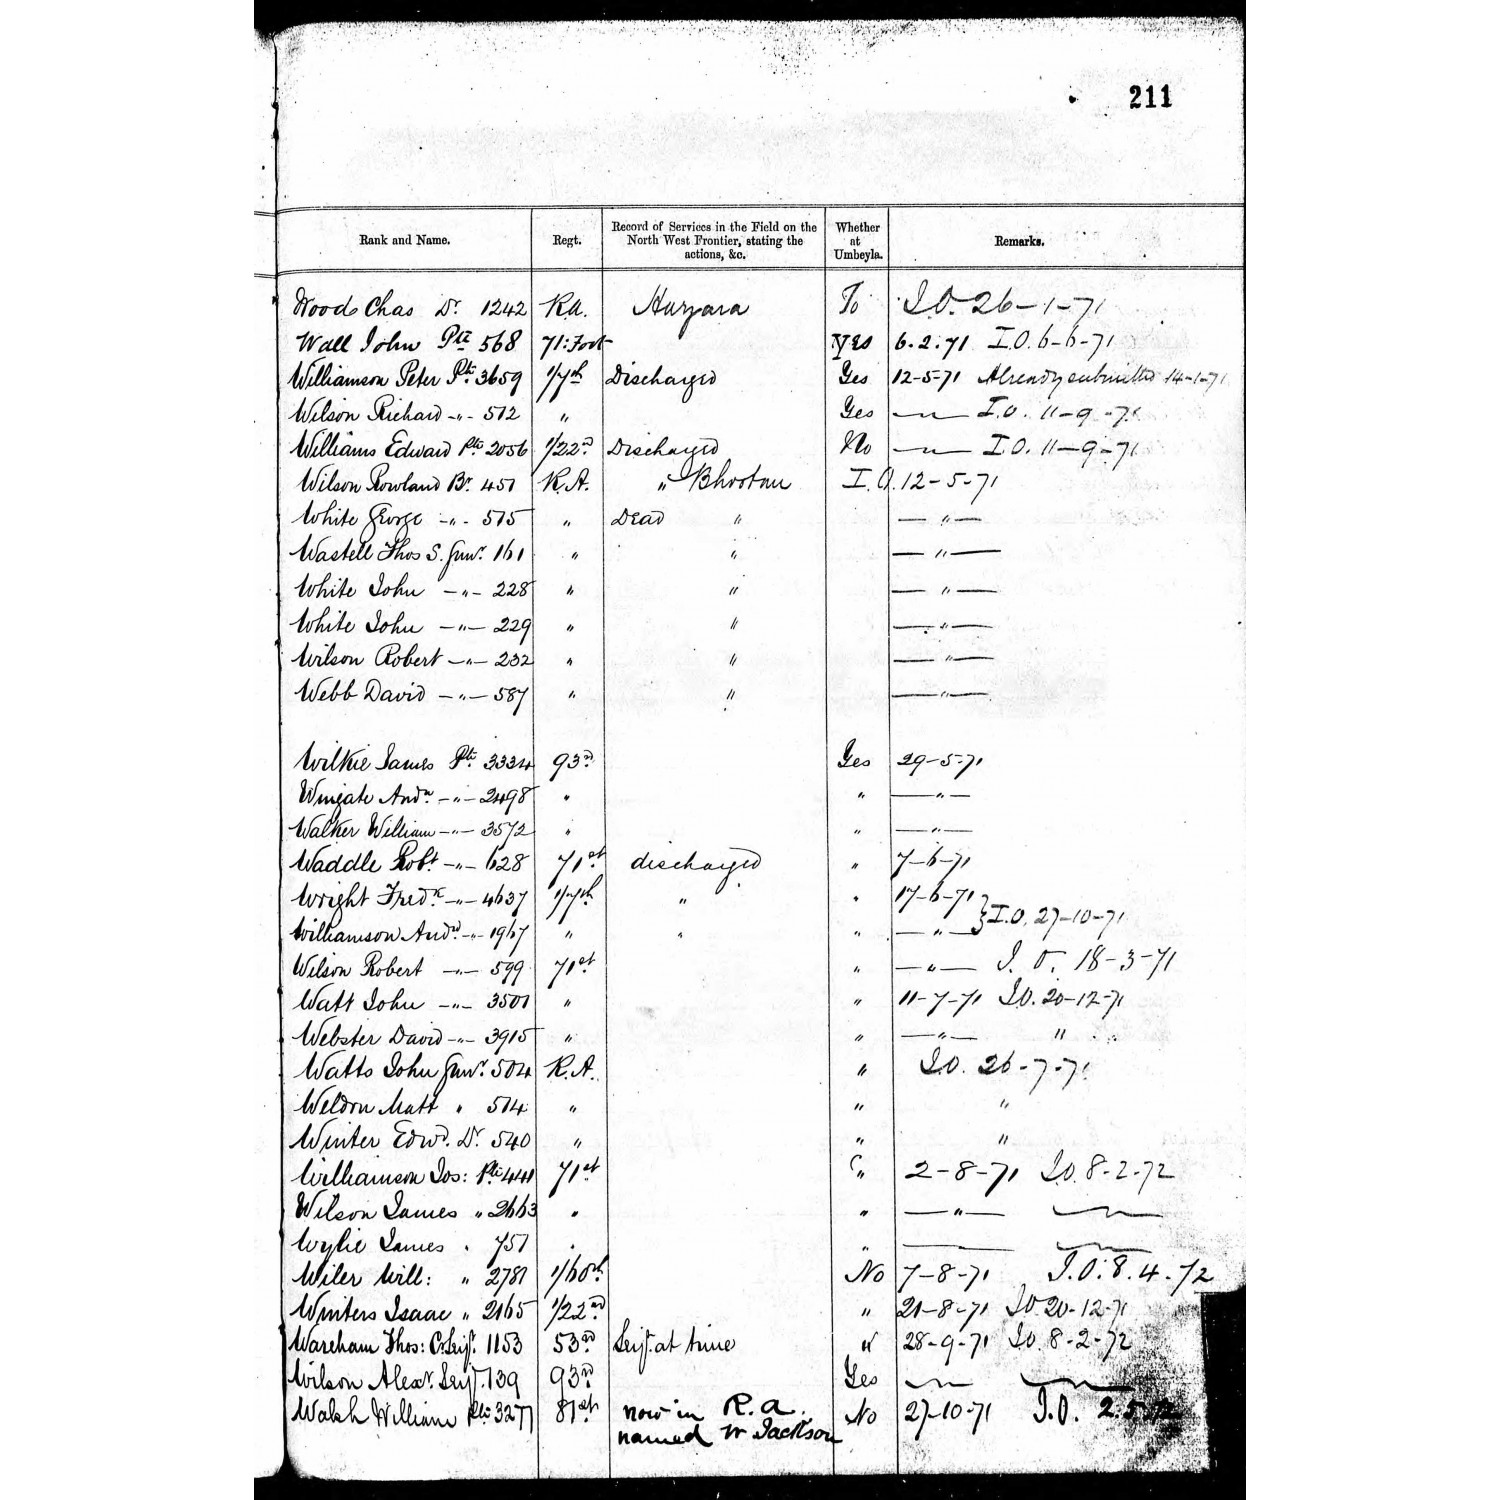 211
Rank and Name. Regt. Record of Services in the Field on the North West Frontier, stating the actions, &c. Whether at Umbeyla. Remarks.
Wood Chas Dr. 1242 R.A. Hazara To I.O. 26-1-71
Wall John Pte 568 71: Foot Yes 6.2.71 I.O. 6-6-71
Williamson Peter Pte. 3659 1/7th Discharged Yes 12-5-71 Already submitted 14-1-71
Wilson Richard -"- 512 " Yes —"— I.O. 11-9-71
Williams Edward Pte 2056 1/22d Discharged No —"— I.O. 11-9-71
Wilson Rowland Br. 451 R.A. " Bhootan I.O. 12-5-71
White George -"- 515 " Dead " —"—
Wastell Thos S. Gunr. 161 " " —"—
White John -"- 228 " " —"—
White John -"- 229 " " —"—
Wilson Robert -"- 232 " " —"—
Webb David -"- 587 " " —"—
Wilkie James Pte 3334 93rd Yes 29-5-71
Wingate Andw -"- 2498 " " —"—
Walker William -"- 3572 " " —"—
Waddle Robt -"- 628 71st discharged " 7-6-71
Wright Fredk -"- 4637 1/7th " " 17-6-71 } I.O. 27-10-71
Williamson Andw -"- 1967 " " " —"—
Wilson Robert -"- 599 71st " —"— I.O. 18-3-71
Watt John -"- 3501 " " 11-7-71 I.O. 20-12-71
Webster David -"- 3915 " " —"— " "
Watts John Gunr. 504 R.A. " I.O. 26-7-71
Weldon Matt " 514 " " "
Winter Edwd. Dr. 540 " " "
Williamson Jos: Pte 441 71st " 2-8-71 I.O. 8-2-72
Wilson James " 2663 " " —"—
Wylie James " 751 " "
Wiler Will: " 2781 1/60th No 7-8-71 I.O. 8.4.72
Winters Isaac " 2165 1/22nd " 21-8-71 I.O. 20-12-71
Wareham Thos: C. Serjt. 1153 53rd Serjt. at time " 28-9-71 I.O. 8-2-72
Wilson Alexr. Serjt. 139 93rd Yes
Walsh William Pte 3277 81st now in R.A. No 27-10-71 I.O. 2.5.72
named W Jackson